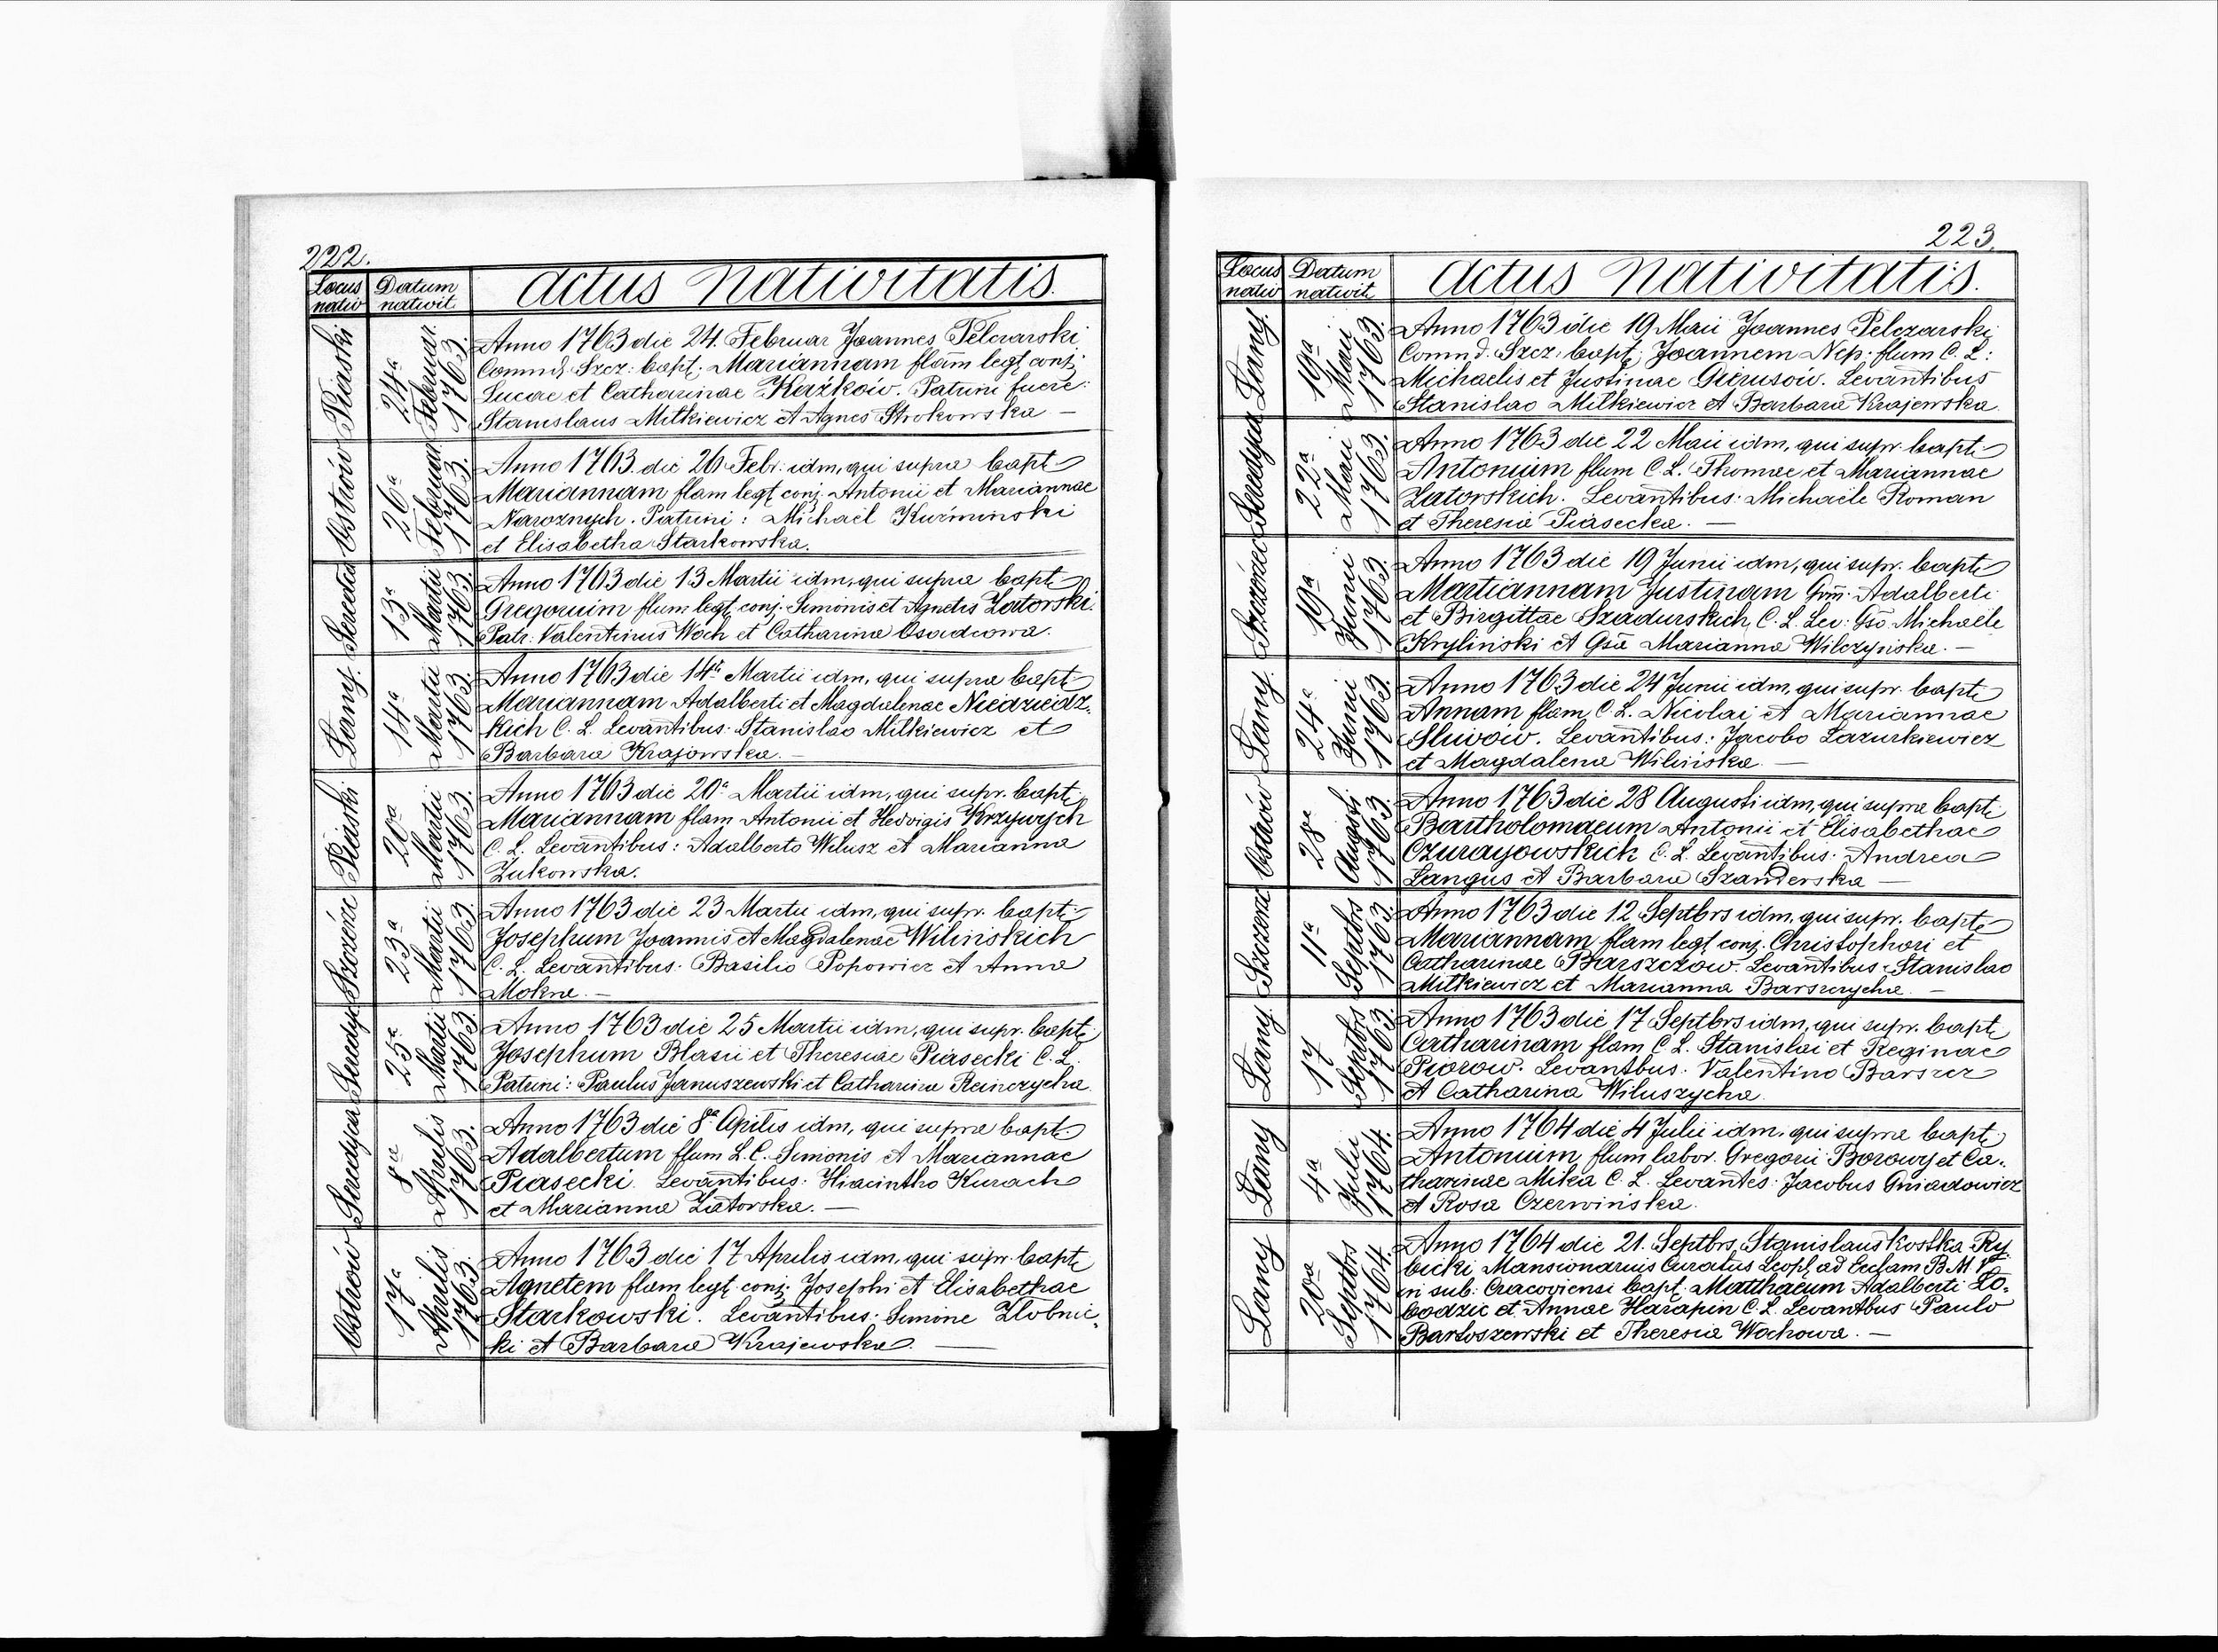 222.
Locus nativ
Datum nativit.
Actus Nativitatis.
Piaski
24ª Februar. 1763.
Anno 1763 die 24. Februar Joannes Pelczarski
Commd. Szcz: bapt: Mariannam flam legt. conj:
Lucae et Catharinae Każków. Patrini fuere:
Stanislaus Mitkiewicz et Agnes Strokowska —
Ostrów
26ª Februar. 1763.
Anno 1763. die 26 Febr. idm, qui supra bapt.
Mariannam flam legt conj. Antonii et Mariannae
Naroznych. Patrini: Michaël Kuźminski
et Elisabetha Starkowska.
Seredca
13ª Martii 1763.
Anno 1763 die 13 Martii idm, qui supra bapt.
Gregorium flum legt. conj. Simonis et Agnetis Zatorski.
Patr. Valentinus Woch et Catharina Osadcowa.
Łany.
14ª Martii 1763.
Anno 1763 die 14ª Martii idm, qui supra bapt.
Mariannam Adalberti et Magdalenae Niedzwiedz-
kich C. L. Levantibus: Stanislao Mitkiewicz et
Barbara Krajowska. —
Piaski
20ª Martii 1763.
Anno 1763 die 20ª Martii idm, qui supr. bapt.
Mariannam flam Antonii et Hedvigis Krzywych
C. L. Levantibus: Adalberto Wilusz et Marianna
Zukowska.
Szczérzc
23ª Martii 1763.
Anno 1763 die 23 Martii idm, qui supr. bapt.
Josephum Joannis et Magdalenae Wilińskich
C. L. Levantibus: Basilio Popowicz et Anna
Mokna. —
Seredyc
25ª Martii 1763.
Anno 1763 die 25 Martii idm, qui supr. bapt.
Josephum Blasii et Theresiae Piasecki C. L.
Patrini: Paulus Januszewski et Catharina Reinczycha
Seredyca
8ª Aprilis 1763.
Anno 1763 die 8ª Aprilis idm, qui supra bapt.
Adalbertum flum L. C. Simonis et Mariannae
Piasecki. Levantibus: Hiacintho Kurach
et Marianna Zatorska. —
Ostrów
17ª Aprilis 1763.
Anno 1763 die 17 Aprilis idm, qui supr. bapt.
Agnetem flam legt. conj. Josephi et Elisabethae
Starkowski. Levantibus: Simone Złobnic-
ki et Barbara Krajewska. —
223.
Locus nativ
Datum nativit.
Actus Nativitatis.
Łany.
19ª Maii 1763.
Anno 1763 die 19 Maii Joannes Pelczarski
Commd. Szcz. bapt. Joannem Nep: flum C. L:
Michaelis et Justinae Gierusów. Levantibus
Stanislao Mitkiewicz et Barbara Krajewska.
Seredyca
22ª Maii 1763.
Anno 1763 die 22 Maii idm, qui supr. bapt.
Antonium flum C. L. Thomae et Mariannae
Zatorskich. Levantibus: Michaële Roman
et Theresia Piasecka. —
Szczérzec
19ª Junii 1763.
Anno 1763 die 19 Junii idm, qui supr. bapt.
Martiannam Justinam Gm. Adalberti
et Birgittae Szadurskich, C. L. Lev: Gso Michaële
Krylinski et Gsa Marianna Wilczyńska. —
Łany.
24ª Junii 1763.
Anno 1763 die 24 Junii idm, qui supr. bapt.
Annam flam C. L. Nicolai et Mariannae
Sliwów. Levantibus: Jacobo Lazurkiewicz
et Magdalena Wilińska. —
Ostrów
28ª Augusti 1763.
Anno 1763 die 28 Augusti idm, qui supra bapt.
Bartholomaeum Antonii et Elisabethae
Czurayowskich C. L. Levantibus: Andrea
Langus et Barbara Szanderska —
Szczerzc
11ª Septbrs 1763.
Anno 1763 die 12 Septbrs idm, qui supr. bapt.
Mariannam flam legt conj. Christophori et
Catharinae Barszczów. Levantibus: Stanislao
Mitkiewicz et Marianna Barszczycha. —
Łany
17 Septbrs 1763.
Anno 1763 die 17 Septbrs idm, qui supr. bapt.
Catharinam flam C L. Stanislai et Reginae
Piorow. Levantbus. Valentino Barszcz
et Catharina Wiluszycha.
Łany
4ª Julii 1764.
Anno 1764 die 4 Julii idm. qui supra bapt.
Antonium flum labor. Gregorii Borowy et Ca-
tharinae Mika C. L. Levantes: Jacobus Gniadowicz
et Rosa Czerwińska.
Łany
20ª Septbrs 1764.
Anno 1764 die 21. Septbrs, Stanislaus Kostka Ry
bicki Mansionarius Curatus Leopl. ad Eccłam B. M. V.
in sub: Cracoviensi bapt. Matthaeum Adalberti Ło-
bodzic et Annae Harapin C. L. Levantbus Paulo
Bartoszewski et Theresia Wochowa. —